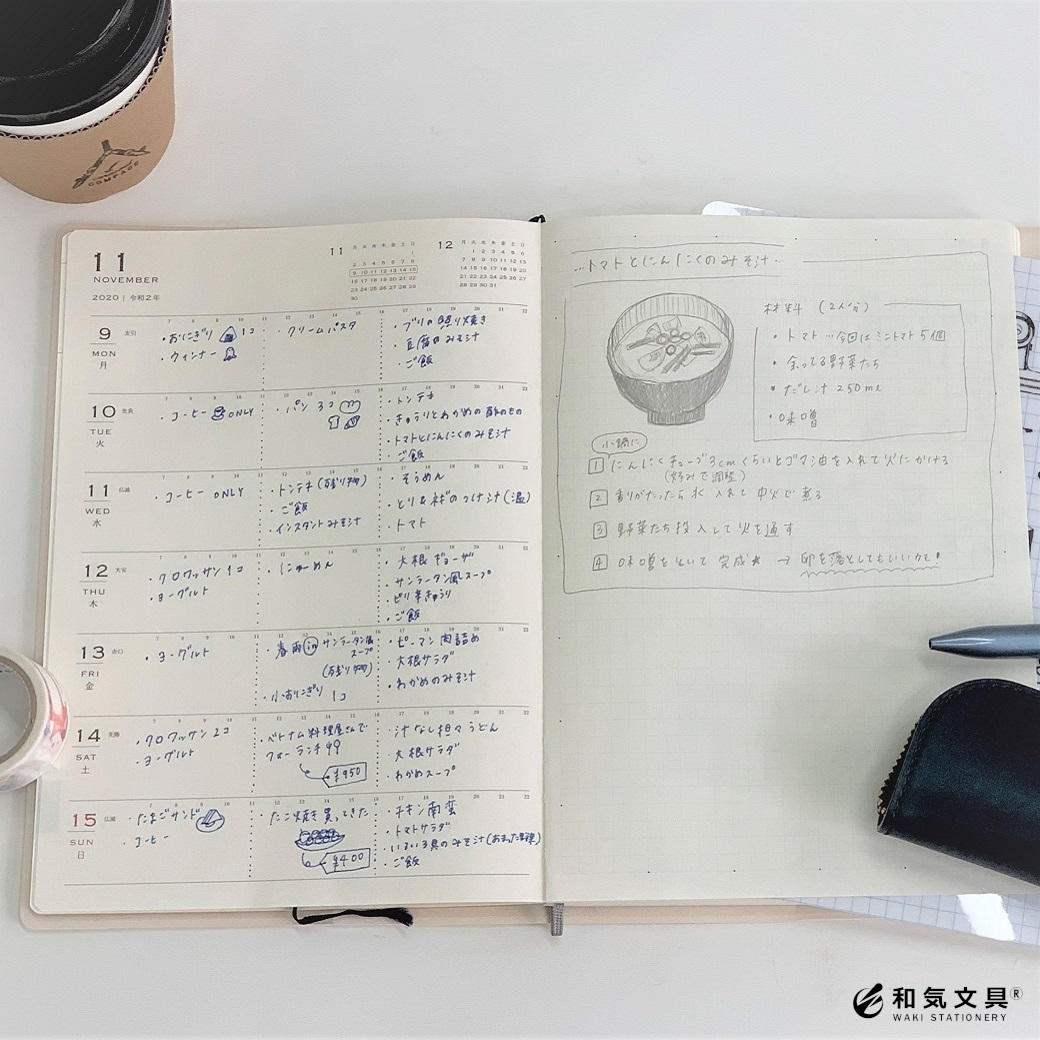 COMPASS
11
NOVEMBER
2020 | 令和2年
11
月 火 水 木 金 土 日
1
2 3 4 5 6 7 8
9 10 11 12 13 14 15
16 17 18 19 20 21 22
23 24 25 26 27 28 29
30
12
月 火 水 木 金 土 日
1 2 3 4 5 6
7 8 9 10 11 12 13
14 15 16 17 18 19 20
21 22 23 24 25 26 27
28 29 30 31
9 友引
MON
月
・おにぎり 1コ
・ウィンナー
・クリームパスタ
・ブリの照り焼き
・豆腐のみそ汁
・ご飯
10 先負
TUE
火
・コーヒー ONLY
・パン 3コ
・トンテキ
・きゅうりとわかめの酢のもの
・トマトとにんにくのみそ汁
・ご飯
11 仏滅
WED
水
・コーヒー ONLY
・トンテキ(お残り物)
・ご飯
・インスタントみそ汁
・そうめん
・とり&ネギのつけ汁(温)
・トマト
12 大安
THU
木
・クロワッサン 1コ
・ヨーグルト
・にゅうめん
・大根ギョーザ
・サンラータン風スープ
・ピリ辛きゅうり
・ご飯
13 赤口
FRI
金
・ヨーグルト
・春雨 in サンラータン風
スープ
・小おにぎり 1コ
・ピーマン肉詰め
・大根サラダ
・わかめのみそ汁
14 先勝
SAT
土
・クロワッサン 2コ
・ヨーグルト
・ベトナム料理屋さんで
フォーランチ
¥950
・汁なし担々うどん
・大根サラダ
・わかめスープ
15 仏滅
SUN
日
・たまごサンド
・コーヒー
・たこ焼き買ってきた
¥400
・チキン南蛮
・トマトサラダ
・いろいろ具のみそ汁(あまった野菜)
・ご飯
…トマトとにんにくのみそ汁…
材料 (2人分)
・トマト …今回はミニトマト5個
・余ってる野菜たち
・だし汁 250ml
・味噌
小鍋に
1 にんにくチューブ3cmくらいとゴマ油を入れて火にかける
(好みで調整)
2 香りがたったら水入れて中火で煮る
3 野菜たち投入して火を通す
4 味噌をといて完成★ → 卵を落としてもいいかも!
和気文具®
WAKI STATIONERY